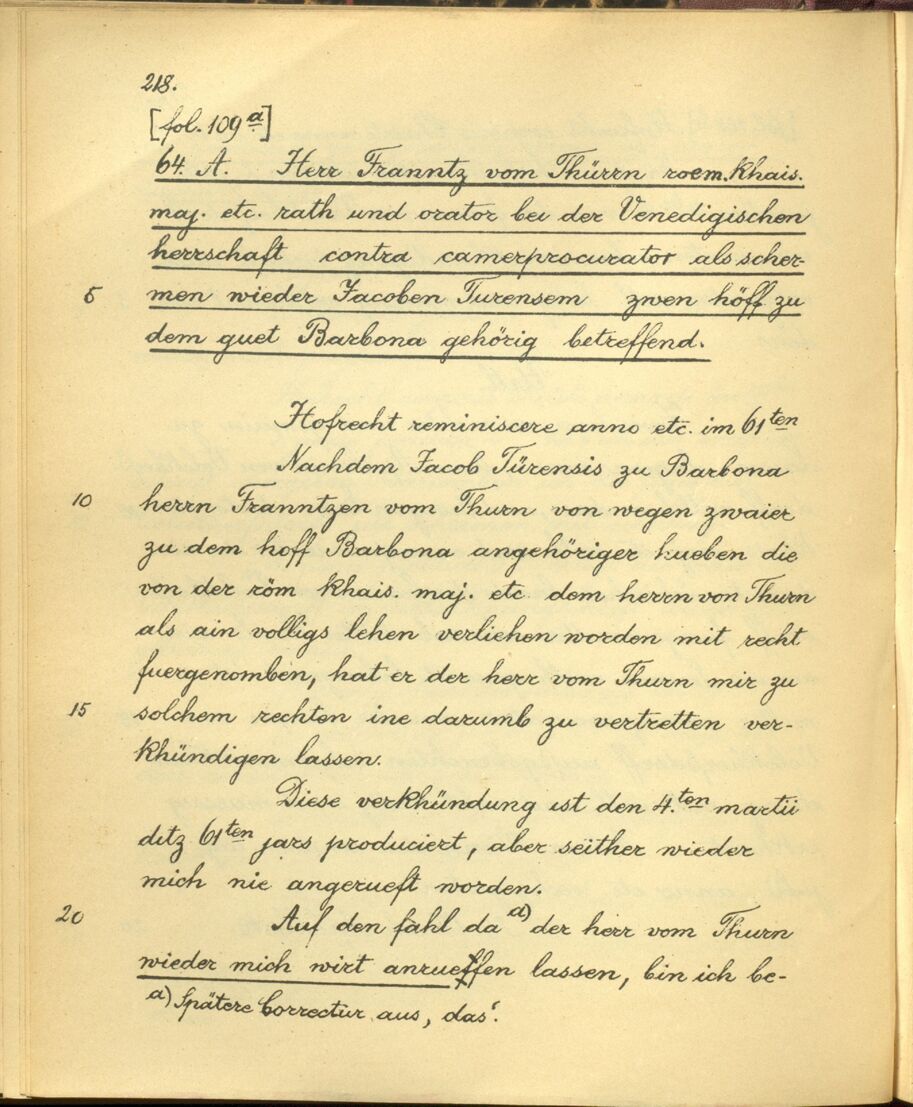 218.
[fol. 109 a]
64. A. Herr Franntz vom Thürrn roem. khais.
maj. etc. rath und orator bei der Venedigischen
herrschaft contra camerprocurator als scher-
5 men wieder Jacoben Turensem zwen höff zu
dem guet Barbona gehörig betreffend.
Hofrecht reminiscere anno etc. im 61ten
Nachdem Jacob Türensis zu Barbona
10 herrn Franntzen vom Thurn von wegen zwaier
zu dem hoff Barbona angehöriger hueben die
von der röm khais. maj. etc dem herrn von Thurn
als ain volligs lehen verliehen worden mit recht
fuergenomben, hat er der herr vom Thurn mir zu
15 solchem rechten ine darumb zu vertretten ver-
khündigen lassen.
Diese verkhündung ist den 4.ten martii
ditz 61ten jars produciert, aber seither wieder
mich nie angerueft worden.
20 Auf den fahl da a) der herr vom Thurn
wieder mich wirt anrueffen lassen, bin ich be-
a) Spätere Correctur aus, das'.